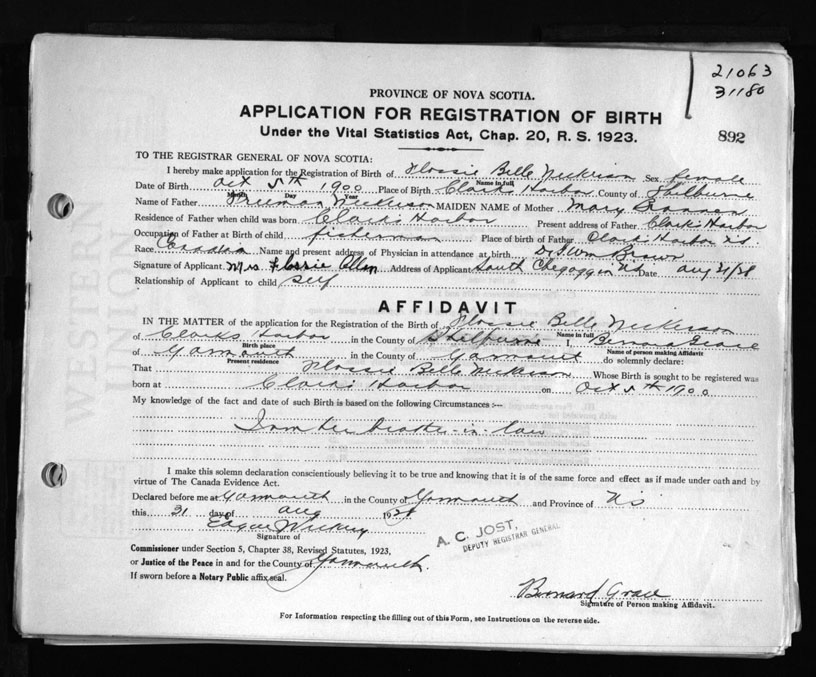 21063
31180
PROVINCE OF NOVA SCOTIA.
APPLICATION FOR REGISTRATION OF BIRTH
Under the Vital Statistics Act, Chap. 20, R. S. 1923.
892
TO THE REGISTRAR GENERAL OF NOVA SCOTIA:
I hereby make application for the Registration of Birth of Flossie Belle Nickerson Sex female
Name in full
Date of Birth Oct 5th 1900 Place of Birth Clarks Harbor County of Shelburne
Month Day Year
Name of Father Freeman Nickerson MAIDEN NAME of Mother Mary
Residence of Father when child was born Clarks Harbor Present address of Father Clarks Harbor
Occupation of Father at Birth of child fisherman Place of birth of Father Clarks Harbor N.S.
Race Canadian Name and present address of Physician in attendance at birth Dr. Brown
Signature of Applicant Mrs Flossie Allen Address of Applicant South Chegoggin NS Date Aug 21/28
Relationship of Applicant to child self
AFFIDAVIT
IN THE MATTER of the application for the Registration of the Birth of Flossie Belle Nickerson
Name in full
of Clarks Harbor in the County of Shelburne I, Bernard Grace
Birth place Name of person making Affidavit
of Yarmouth in the County of Yarmouth do solemnly declare:
Present residence
That Flossie Belle Nickerson Whose Birth is sought to be registered was
born at Clarks Harbor on Oct 5th 1900
My knowledge of the fact and date of such Birth is based on the following Circumstances :—
I am her brother-in-law
I make this solemn declaration conscientiously believing it to be true and knowing that it is of the same force and effect as if made under oath and by
virtue of The Canada Evidence Act.
Declared before me at Yarmouth in the County of Yarmouth and Province of NS
this 21 day of Aug 1928
Signature of
A. C. JOST,
DEPUTY REGISTRAR GENERAL
Commissioner under Section 5, Chapter 38, Revised Statutes, 1923,
or Justice of the Peace in and for the County of Yarmouth.
If sworn before a Notary Public affix seal.
Bernard Grace
Signature of Person making Affidavit.
For Information respecting the filling out of this Form, see Instructions on the reverse side.
WESTERN
UNION